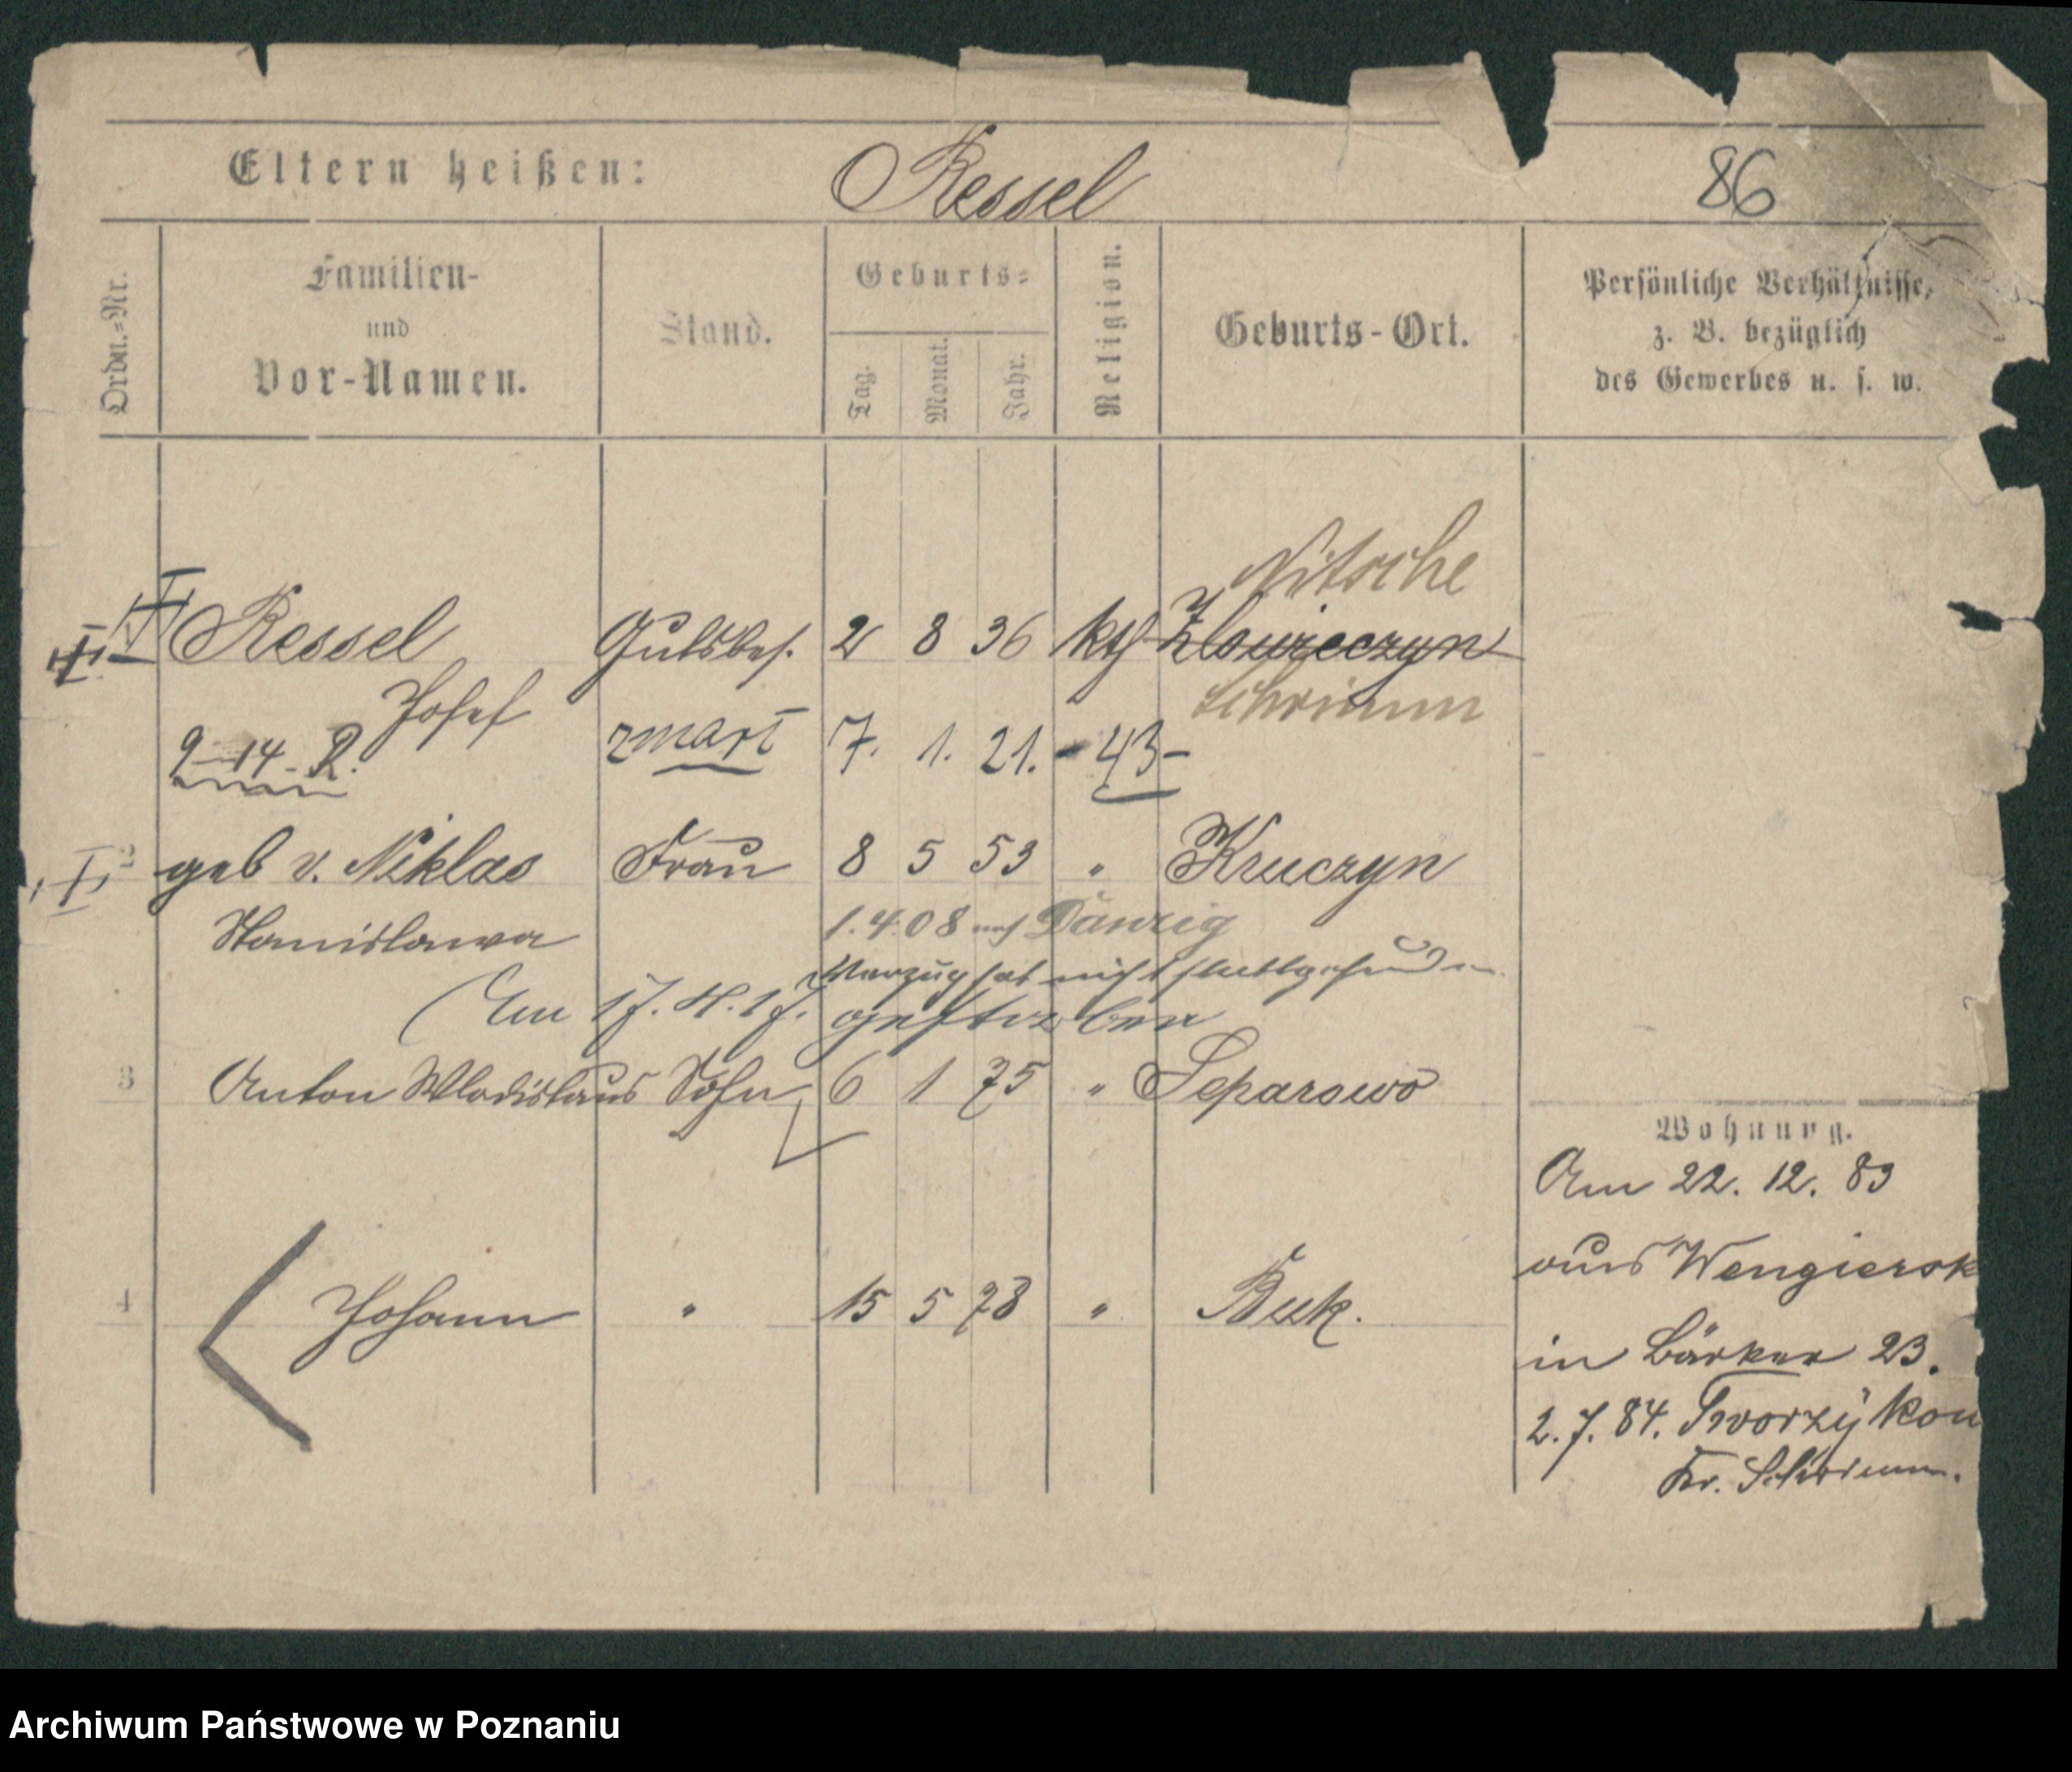 Eltern heißen: Ressel 86
Ordn.=Nr.
Familien-
und
Vor-Namen.
Stand.
Geburts=
Tag.
Monat.
Jahr.
Religion.
Geburts-Ort.
Persönliche Verhältnisse,
z. B. bezüglich
des Gewerbes u. s. w.
Nitsche
Ressel Gutsbes. 2 8 36 kth
Schrimm
Josef
9-14. R. zmarł 7. 1. 21. - 43-
2 geb v. Niklas Frau 8 5 53 " Kruczyn
Stanislawa 1.4.08 nach Danzig
Verzug hat nicht stattgefunden
Am 17. 4. 17. gestorben
3 Anton Wladislaus Sohn 6 1 75 " Separowo
4 Johann " 15 5 78 " Buk.
Wohnung.
Am 22. 12. 83
aus Wengiersk
in Bäcker 23.
2. 7. 84. Tworzykow
Kr. Schrimm.
Archiwum Państwowe w Poznaniu